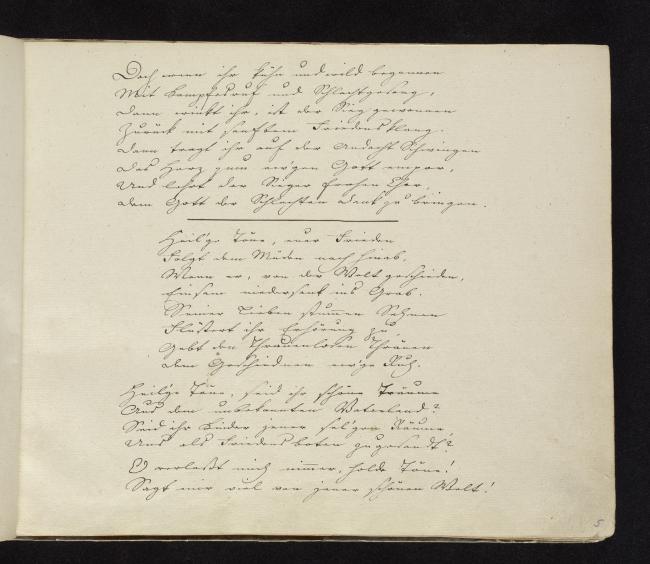 Doch wenn ihr kühn und wild begonnen
Mit Kampfesruf und Schlachtgesang,
Dann winkt ihr, ist der Sieg gewonnen
Zurück mit sanftem Friedensklang.
Dann tragt ihr auf der Andacht Schwingen
Das Herz zum ew'gen Gott empor,
Und lehrt der Sieger frohen Chor,
dem Gott der Schlachten Dank zu bringen.
Heil'ge Töne, euer Frieden
Folgt dem Müden nach hinab,
Wenn er, von der Welt geschieden,
Einsam niedersenkt ins Grab.
Seiner Lieben stummen Sehnen
Flüstert ihr Erhörung zu
Gebt den Thränenlosen Thränen
dem Geschiednen ew'ge Ruh.
Heil'ge Töne, seid ihr schöne Träume
Aus dem unbekannten Vaterland?
Seid ihr Kinder jener sel'gen Räume
Uns als Friedensboten zugesandt?
O verlaßt mich nimmer, holde Töne!
Sagt mir viel von jener schönen Welt!
5